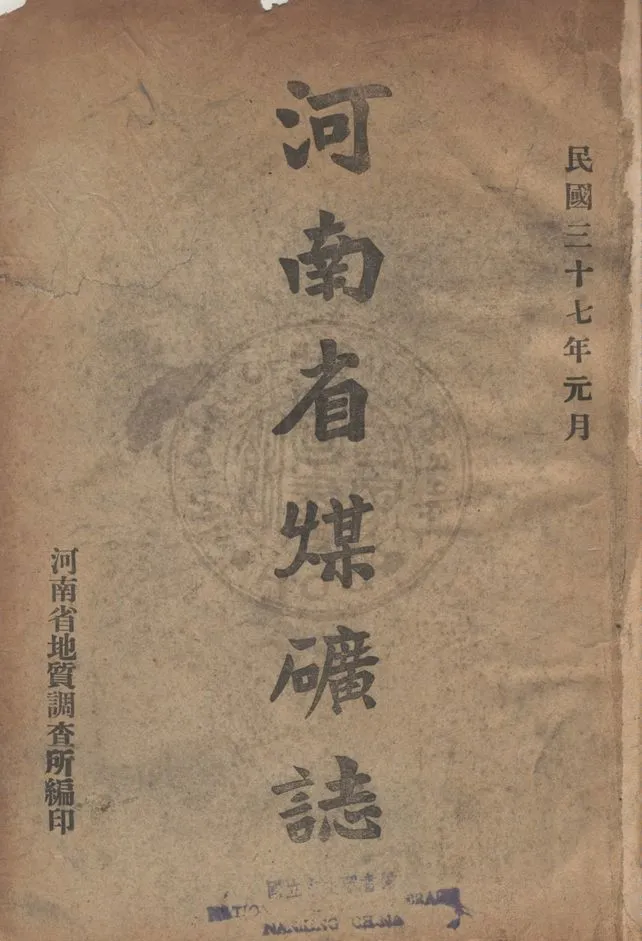 民國三十七年元月
河南省煤礦誌
河南省地質調查所編印
國立
NANKING CHINA